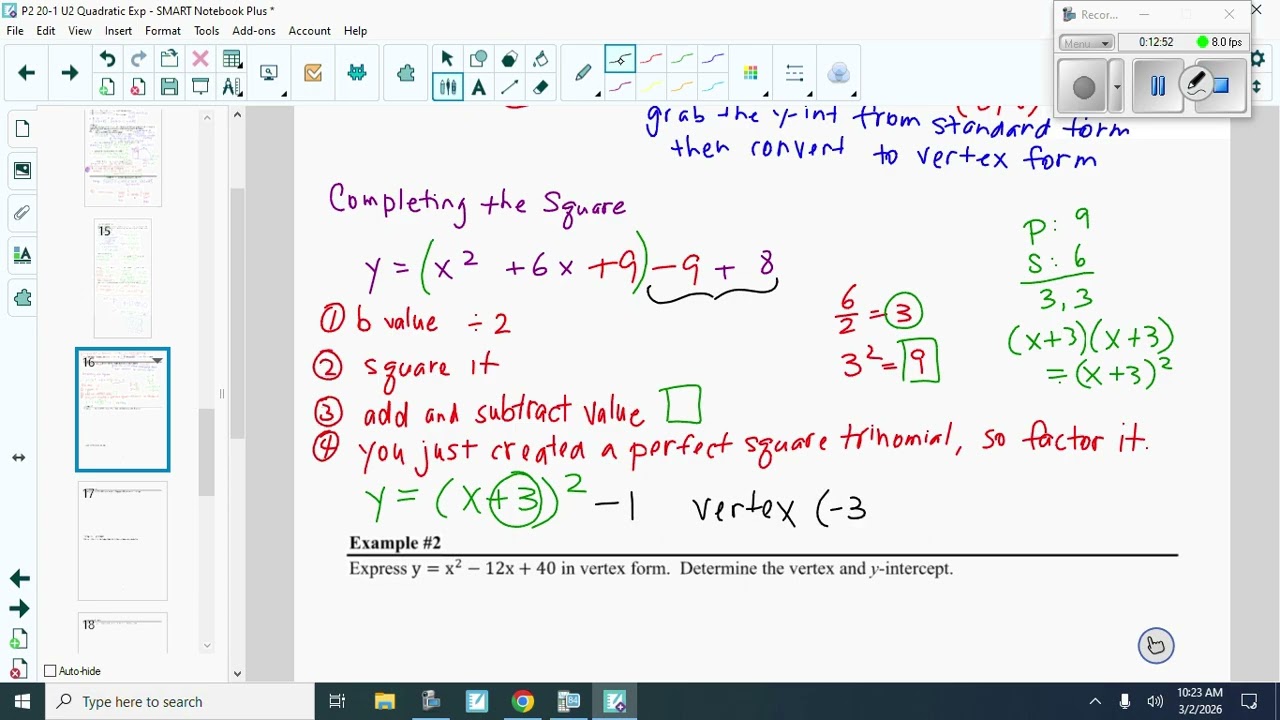 P2 20-1 U2 Quadratic Exp - SMART Notebook Plus *
Recor...
File Edit View Insert Format Tools Add-ons Account Help
Menu... 0:12:52 8.0 fps
grab the y-int from standard form
then convert to vertex form
Completing the Square
y = (x² + 6x + 9) - 9 + 8
P: 9
S: 6
3, 3
(x+3)(x+3)
= (x+3)²
① b value ÷ 2
6/2 = 3
② square it
3² = 9
③ add and subtract value □
④ you just created a perfect square trinomial, so factor it.
y = (x+3)² - 1 vertex (-3
Example #2
Express y = x² − 12x + 40 in vertex form. Determine the vertex and y-intercept.
15
16
17
18
Auto-hide
Type here to search
10:23 AM
3/2/2026